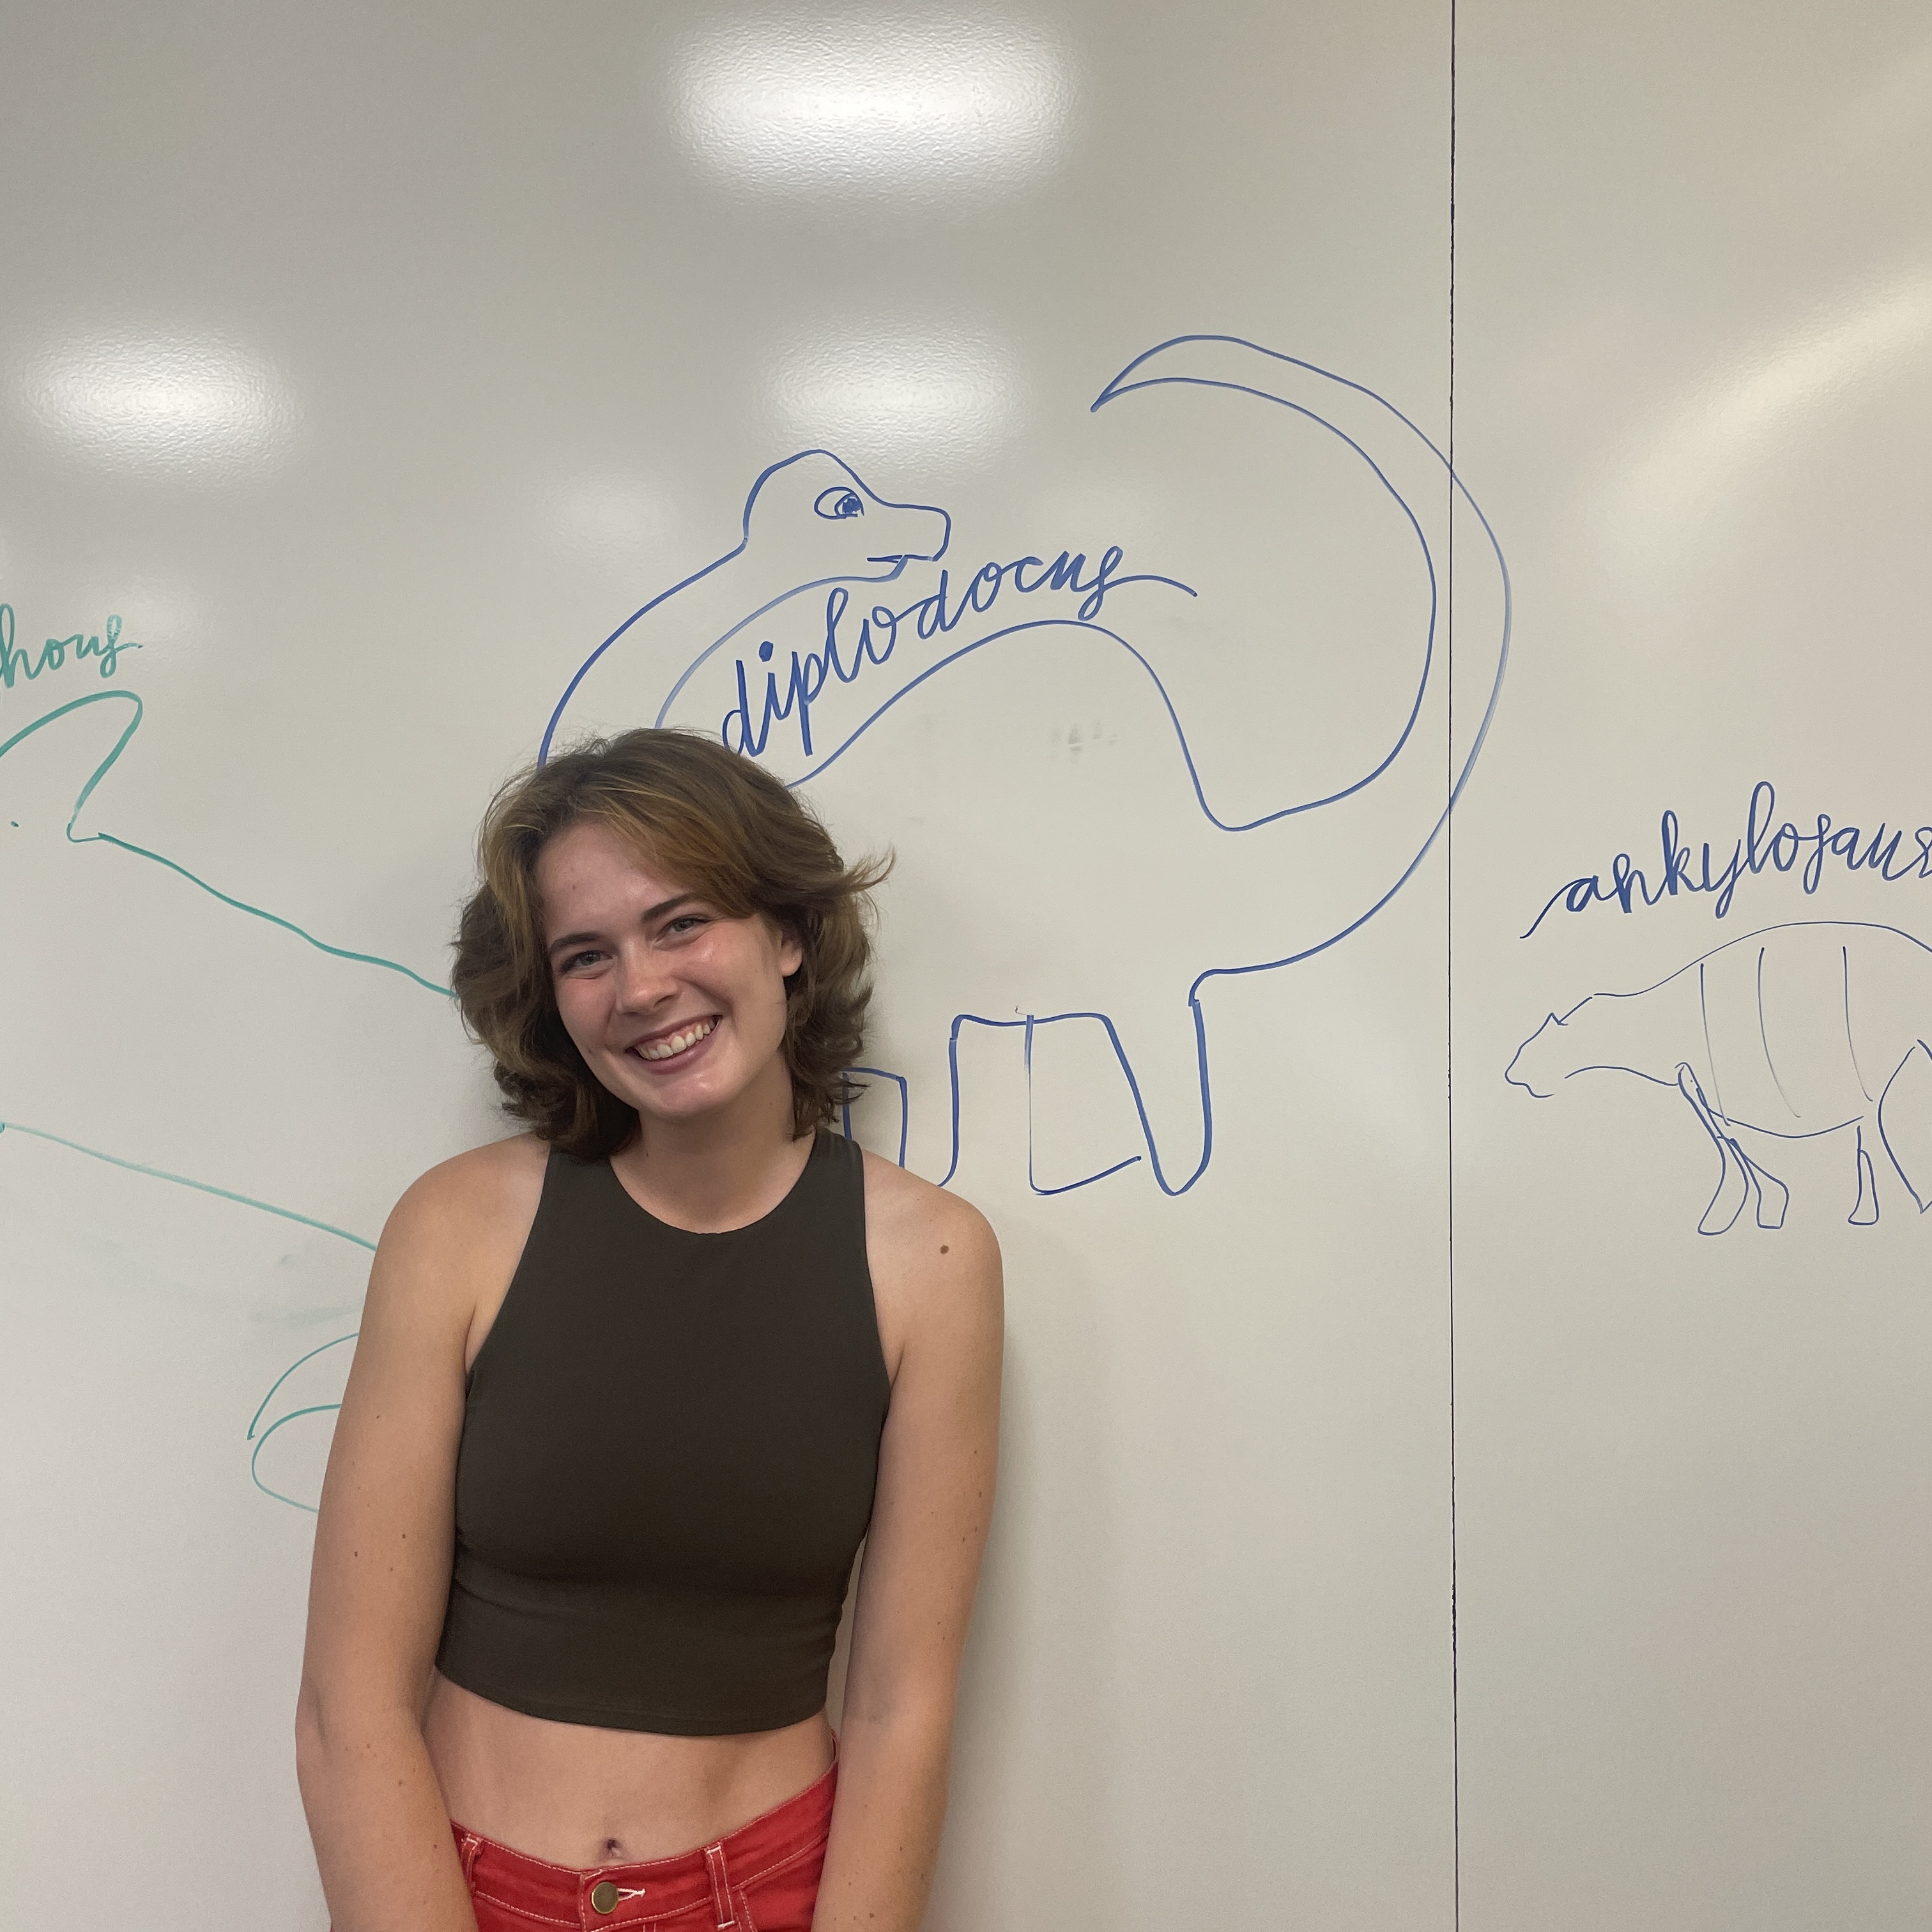 hous
diplodocus
ankylosaur